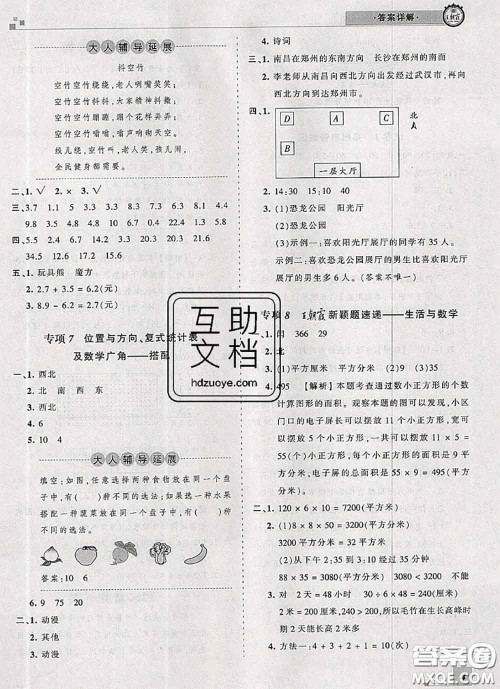 ·答案详解·
王朝霞
大人辅导延展
抖空竹
空竹空竹绕绕,老人咧嘴笑笑;
空竹空竹抖抖,大家精神抖擞;
空竹空竹蹦蹦,蹦个花样弄弄;
空竹空竹嗡嗡,嗡声响彻天空。
线儿绕,空竹叫,老人笑,孩儿闹,
全民健身都需要。
二、1.√ 2.× 3.√
三、1.3 1.5 3.1 3.3 5.7 7.4 9.1
9.8 3.5 2.2 4.4 0.9 0.8
四、5.2 6.6 14.3 20.3 15.4 21.6
五、1.玩具熊 魔方
2.2.7+3.5=6.2(元)
3.8.2-1.6=6.6(元)
专项7 位置与方向、复式统计表
及数学广角——搭配
一、1.西北
2.北 南 西 东
3.西北
4.6
5.10 4
大人辅导延展
填空:如图,任意选择两种食物放在同一个盘
子中,有( )种不同的选法;如果选一种水果
搭配一种蔬菜放在同一个盘子中,有( )种
不同的选法。
答案:10 6
6.9 75 20
二、1.动漫
2.其他
3.动漫
4.诗词
三、1.南昌在郑州的东南方向 长沙在郑州的南面
2.李老师从南昌向西北方向出发经过武汉市,再向
西北方向到达郑州市。
四、1.
D
A
C
B
北
一层大厅
2.14:30 15:10 40
3.(1)恐龙公园 阳光厅
(2)恐龙公园
(3)示例一:喜欢阳光厅展厅的同学有35人。
示例二:喜欢恐龙公园展厅的男生比喜欢阳光厅
展厅的男生多6人。(答案不唯一)
专项8 王朝霞新颖题速递——生活与数学
一、1.闰 366 29
2.北
4.495 【解析】本题考查通过数小正方形的个数
计算图形的面积。观察本题的图可以发现,小区
门口的电子屏长可以摆11个小正方形,宽可以
摆5个小正方形,一共可以摆11×5=55(个)小
正方形,电子屏的总面积是55×9=495(平方
分米)。
二、1.120×6×10=7200(平方分米)
2.(1)8×8×50=3200(平方厘米)
3200平方厘米=32平方分米
(2)从下午2:35到3:10经过35分钟
88×35=3080(平方厘米) 3080<3200 能
3.对 2天=48小时 30÷6×48=240(厘米)
240厘米>2米,所以毛竹在生长高峰时
期2天能生长高2米多
4.方法一:4+3+2+1=10(次)
互助
文档
hdzuoye.com
答案圈
MXQE.COM